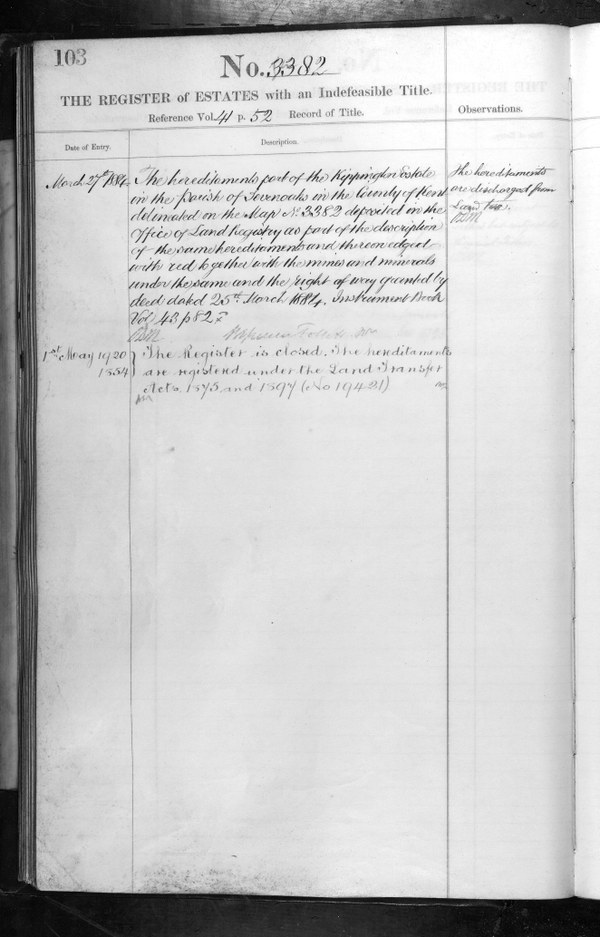 103
No. 3382
THE REGISTER of ESTATES with an Indefeasible Title.
Reference Vol. 41 p. 52 Record of Title.
Observations.
Date of Entry.
Description.
March 27th 1884.
The hereditaments part of the Kippington Estate
in the parish of Sevenoaks in the County of Kent
delineated on the Map No. 3382 deposited in the
Office of Land Registry as part of the description
of the same hereditaments and thereon edged
with red together with the mines and minerals
under the same and the right of way granted by
deed dated 25th March 1884. Instrument Book
Vol 43 p 82
The hereditaments
are discharged from
Land tax.
1st May 1920
1854
The Register is closed. The hereditaments
are registered under the Land Transfer
Acts. 1875 and 1897 (No 19431)